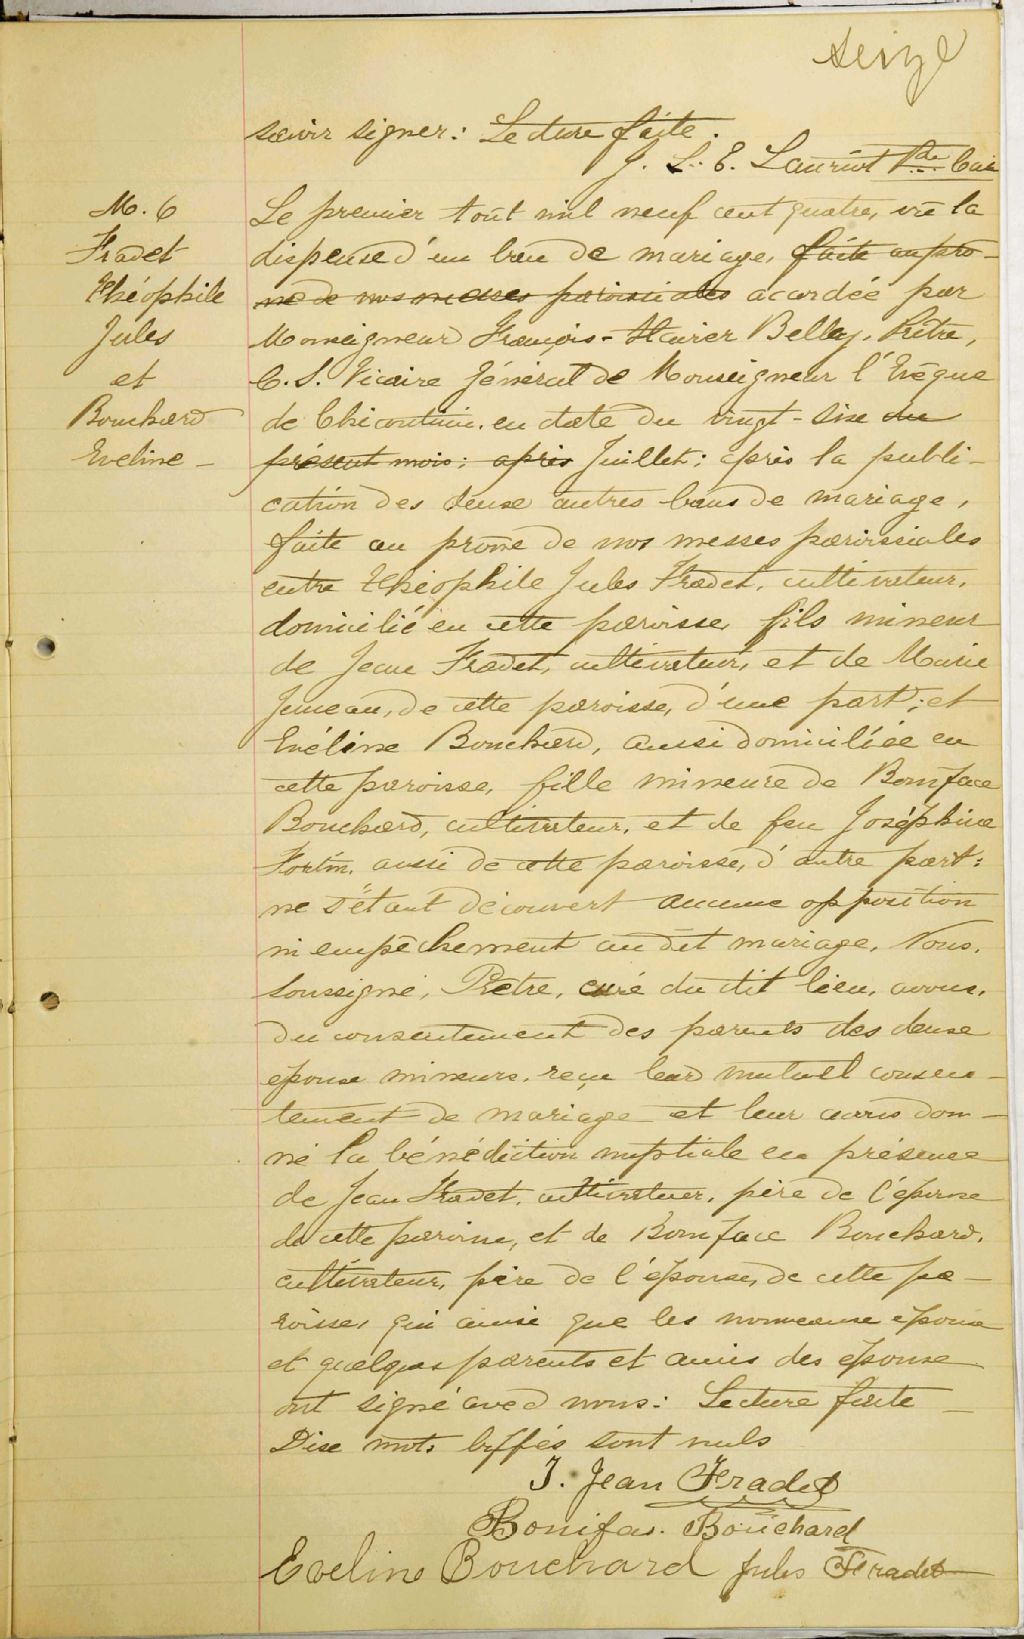 seize
savoir signer: Lecture faite.
J. L. E. Lauriot Ptre Curé
M. 6
Fradet
Théophile
Jules
et
Bouchard
Eveline —
Le premier août mil neuf cent quatre, vu la
dispense d'un ban de mariage, faite au prô-
ne de nos messes paroissiales accordée par
Monseigneur François-Xavier Belley, Prêtre,
C. S. Vicaire Général de Monseigneur l'Evêque
de Chicoutimi, en date du vingt-six du
présent mois; après Juillet; après la publi-
cation des deux autres bans de mariage,
faite au prône de nos messes paroissiales
entre Théophile Jules Fradet, cultivateur,
domicilié en cette paroisse, fils mineur
de Jean Fradet, cultivateur, et de Marie
Juneau, de cette paroisse, d'une part; et
Evéline Bouchard, aussi domiciliée en
cette paroisse, fille mineure de Boniface
Bouchard, cultivateur, et de feu Joséphine
Fortin, aussi de cette paroisse, d'autre part:
ne s'étant découvert aucune opposition
ni empêchement au dit mariage, Nous,
soussigné, Prêtre, curé du dit lieu, avons,
du consentement des parents des deux
époux mineurs, reçu leur mutuel consen-
tement de mariage et leur avons don-
né la bénédiction nuptiale en présence
de Jean Fradet, cultivateur, père de l'époux
de cette paroisse, et de Boniface Bouchard,
cultivateur, père de l'épouse, de cette pa-
roisse, qui ainsi que les nouveaux époux
et quelques parents et amis des époux
ont signé avec nous: Lecture faite —
Dix mots biffés sont nuls
J. Jean Fradet
Bonifas. Bouchard
Eveline Bouchard Jules Fradet